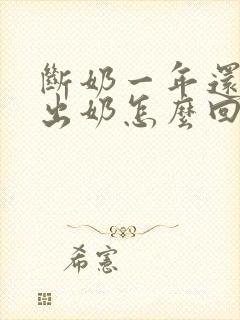 斷奶一年還
出奶怎麼回
希憲